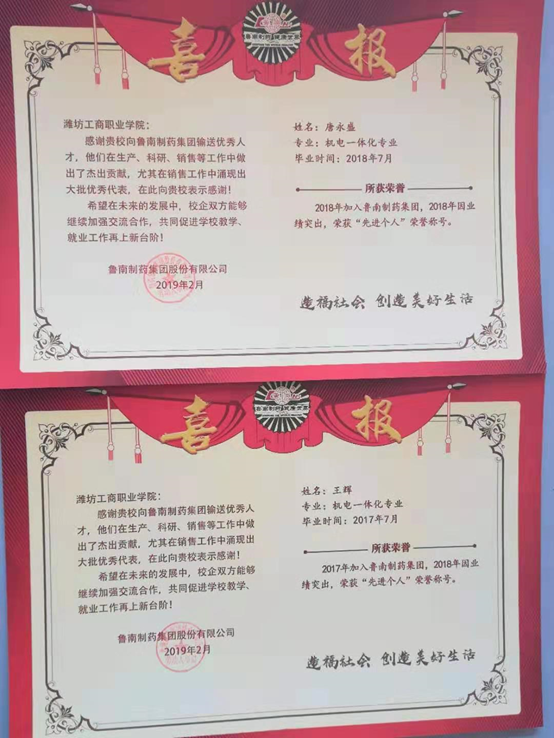 喜报
鲁南制药 健康世界
潍坊工商职业学院：
感谢贵校向鲁南制药集团输送优秀人
才，他们在生产、科研、销售等工作中做
出了杰出贡献，尤其在销售工作中涌现出
大批优秀代表，在此向贵校表示感谢！
希望在未来的发展中，校企双方能够
继续加强交流合作，共同促进学校教学、
就业工作再上新台阶！
鲁南制药集团股份有限公司
2019年2月
姓名：唐永盛
专业：机电一体化专业
毕业时间：2018年7月
所获荣誉
2018年加入鲁南制药集团，2018年因业
绩突出，荣获“先进个人”荣誉称号。
造福社会 创造美好生活
喜报
鲁南制药 健康世界
潍坊工商职业学院：
感谢贵校向鲁南制药集团输送优秀人
才，他们在生产、科研、销售等工作中做
出了杰出贡献，尤其在销售工作中涌现出
大批优秀代表，在此向贵校表示感谢！
希望在未来的发展中，校企双方能够
继续加强交流合作，共同促进学校教学、
就业工作再上新台阶！
鲁南制药集团股份有限公司
2019年2月
姓名：王辉
专业：机电一体化专业
毕业时间：2017年7月
所获荣誉
2017年加入鲁南制药集团，2018年因业
绩突出，荣获“先进个人”荣誉称号。
造福社会 创造美好生活